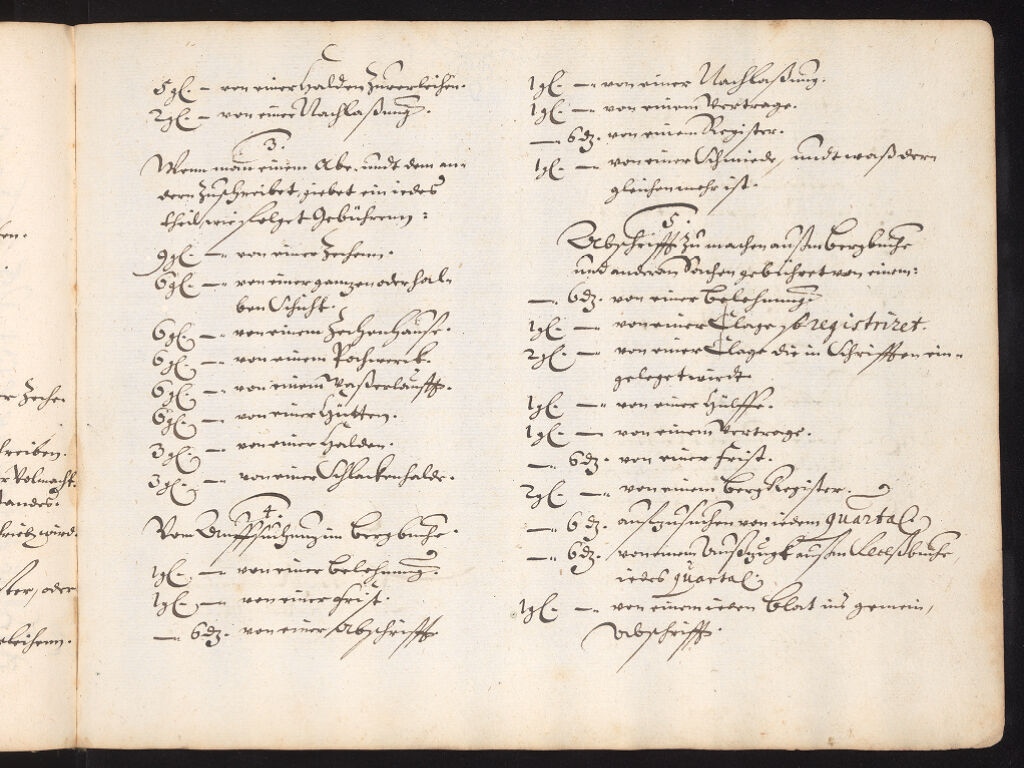 5 gl. — von einer Halden Zuuerleihen.
2 gl. — von einer Nachlaßung.
3.
Wenn man einem Abe, undt dem an-
dern Zuschreibet, giebet ein iedes
theil, wie folget Gebührenn:
9 gl. — von einer Zechenn.
6 gl. — von einer gantzen oder hal-
ben Schicht.
6 gl. — von einem Zechenhause.
6 gl. — von einem Pochwerck.
6 gl. — von einem Waßerlaufft.
6 gl. — von einer Hütten.
3 gl. — von einer Halden.
3 gl. — von einer Schlackenhalde.
4.
Vom Auffsuchung im bergbuche.
1 gl. — von einer belehnung.
1 gl. — von einer frist.
— 6 dz. von einer Abschrifft
1 gl. — von einer Nachlaßung.
1 gl. — von einem Vertrage.
— 6 dz. von einem Register.
1 gl. — von einer Schmiede, undt waß dern
gleichen mehr ist.
5.
Abschrifft Zu machen außm bergbuche
und anderan Sachen gebühret von einem:
— 6 dz. von einer belehnung.
1 gl. — von einer Clage so registrizet.
2 gl. — von einer Clage die in Schrifften ein-
geleget wirdt.
1 gl. — von einer Hülffe.
1 gl. — von einem Vertrage.
— 6 dz. von einer frist.
2 gl. — von einem berg Register.
— 6 dz. aufzusuchen von iedem quartal.
— 6 dz. von einem Außzugk ausm Receßbuche,
iedes quartal.
1 gl. — von einem ieden blat ins gemein,
Abschrifft.
fen.
er Zeche.
hreiben.
r Volmacht.
tandes.
hrieben wird.
ster, oder
leihenn.